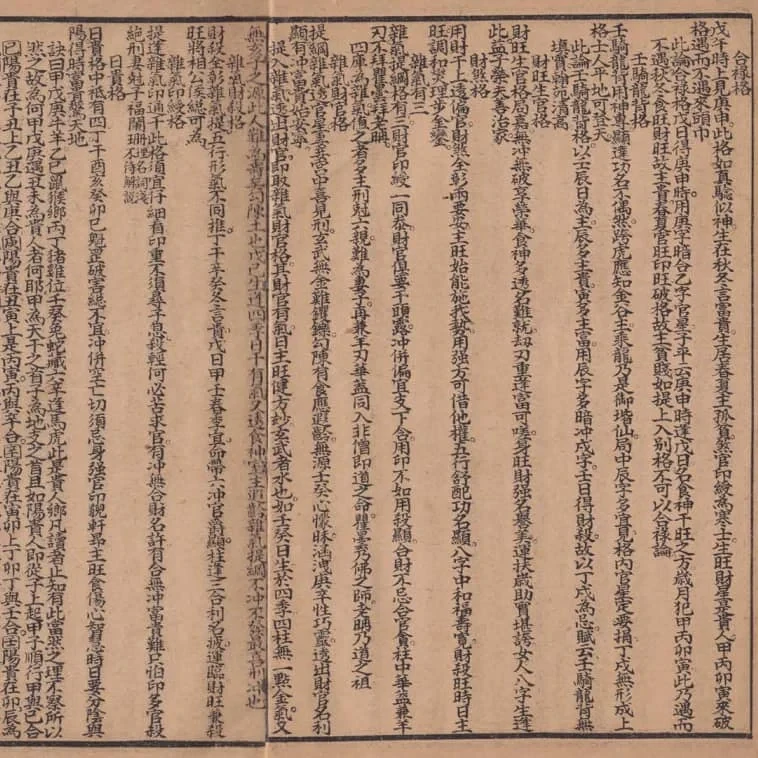 合祿格
戊午時上見庚申此格如真驗以神生在秋冬言富貴生居春夏主孤貧煞官印綬為寒士生旺財星是貴人甲丙卯寅來破
格遇而不遇來頭巾
此論合祿格戊日得庚申時用庚字暗合乙字官星子平云庚申時逢戊日名食神干旺之方歲月犯甲丙卯寅此乃遇而
不遇秋冬食旺財旺故主貴春夏官旺印旺破格故主貧賤如提上入別格不可以合祿論
壬騎龍背格
壬騎龍背用神專顯達功名不偶然跨虎應知金谷主乘龍乃是御堦仙局中辰字多宜見格內官星定要捐丁戌無形成上
格士人平地可登天
此論壬騎龍背格以壬辰日為主辰多主貴寅多主富用辰字多暗冲戌字壬日得財殺故以丁戌為忌賦云壬騎龍背無
填實翰苑清高
財旺生官格
財旺生官格局嘉無冲無破享榮華食神多透名難就刼刃重逢富可嗟身旺財強名譽美運扶歲助實堪誇女人八字生逢
此益子榮夫善治家
財煞格
用財干上透偏官財煞全彰兩要安主旺始能施我勢用強方可借他權五行舒配功名顯八字中和福壽寬財殺旺時日主
旺調和爕理步金鑾
雜氣有三
雜氣提綱格有三財官印綬一同叅財官俱要干頭露冲併偏宜支下含用印不如用殺顯合財不忌合官貪柱中華盖兼羊
刃不拜瞿曇拜老聃
四庫為雜氣值之者多主刑尅六親難為妻子再兼羊刃華蓋同入非僧即道之命瞿曇乃佛之師老聃乃道之祖
雜氣財官格
提綱雜氣透官星要喜宮中喜見刑玄武無金難鑵鑠勾陳有食應遐齡無源壬癸心懷昧涵洩庚辛性巧靈透出財官名利
顯有冲富貴始安寧
提入雜氣透出財官即取雜氣財官格其財官有氣日主旺健方妙玄武者水也如壬癸日生於四季四柱無一點金氣又
無亥子之源此人難為壽勾陳土也戊己生逢四季日干有氣又透食神主遐齡雜氣提綱不冲不發最喜刑冲也
雜氣財殺格
財殺全彰雜氣提五行形氣不同推丁干辛癸冬言貴戊日甲壬春季宜命帶六冲官爵顯柱逢三合利名披運臨財旺兼殺
旺將相公侯總可為
雜氣印綬格
提逢雜氣印通干此格須宜仔細看印重不須尋子息殺輕何必苦求官有冲無合財名許有合無冲富貴難只怕印多官殺
絕刑妻尅子福闌珊理名詞淺不待解說
日貴格
日貴格中祗有四丁午酉亥癸卯巳魁罡破害總不宜冲併空亡切須忌身强官印貌軒昂主旺食傷心智慧時日要分陰與
陽得時富貴驚天地
訣曰甲戊庚牛羊乙己鼠猴鄉丙丁猪雞位壬癸兔蛇藏六辛逢馬虎此是貴人鄉凡讀者止知有此當然之理不察所以
然之故為何甲戊庚遇丑未為貴人者何耶甲為天干之首子為地支之首且如陽貴人即從子上起甲子順行甲與己合
己陽貴在子丑上乙丑乙與庚合庚陽貴在丑寅上是丙寅丙與辛合辛陽貴在寅卯上丁卯丁與壬合壬陽貴在卯辰為